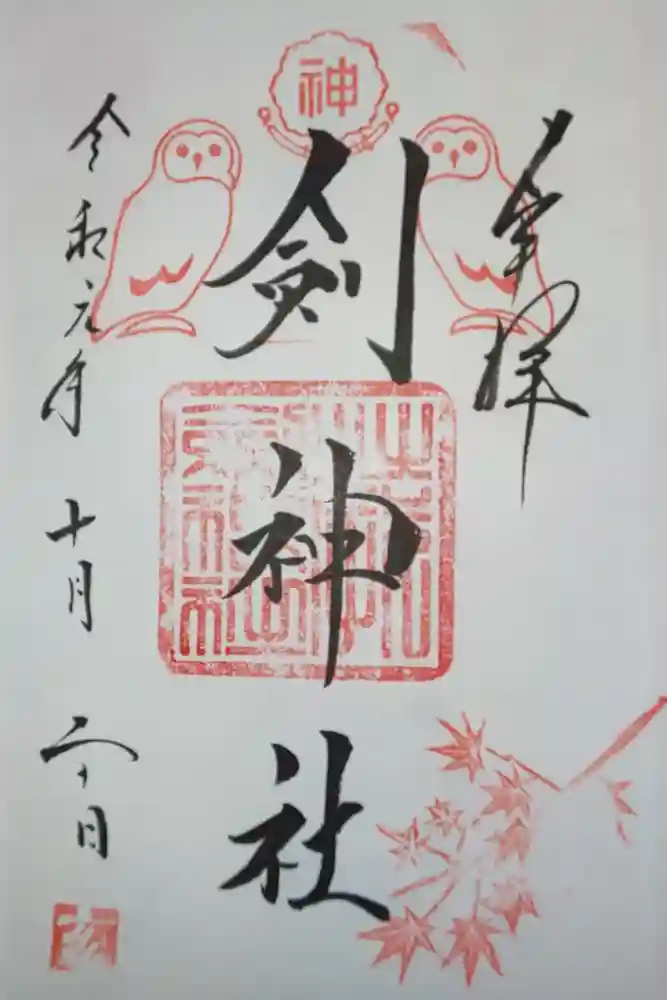 奉拝
神
劍神社
令和元年 十月 二十日